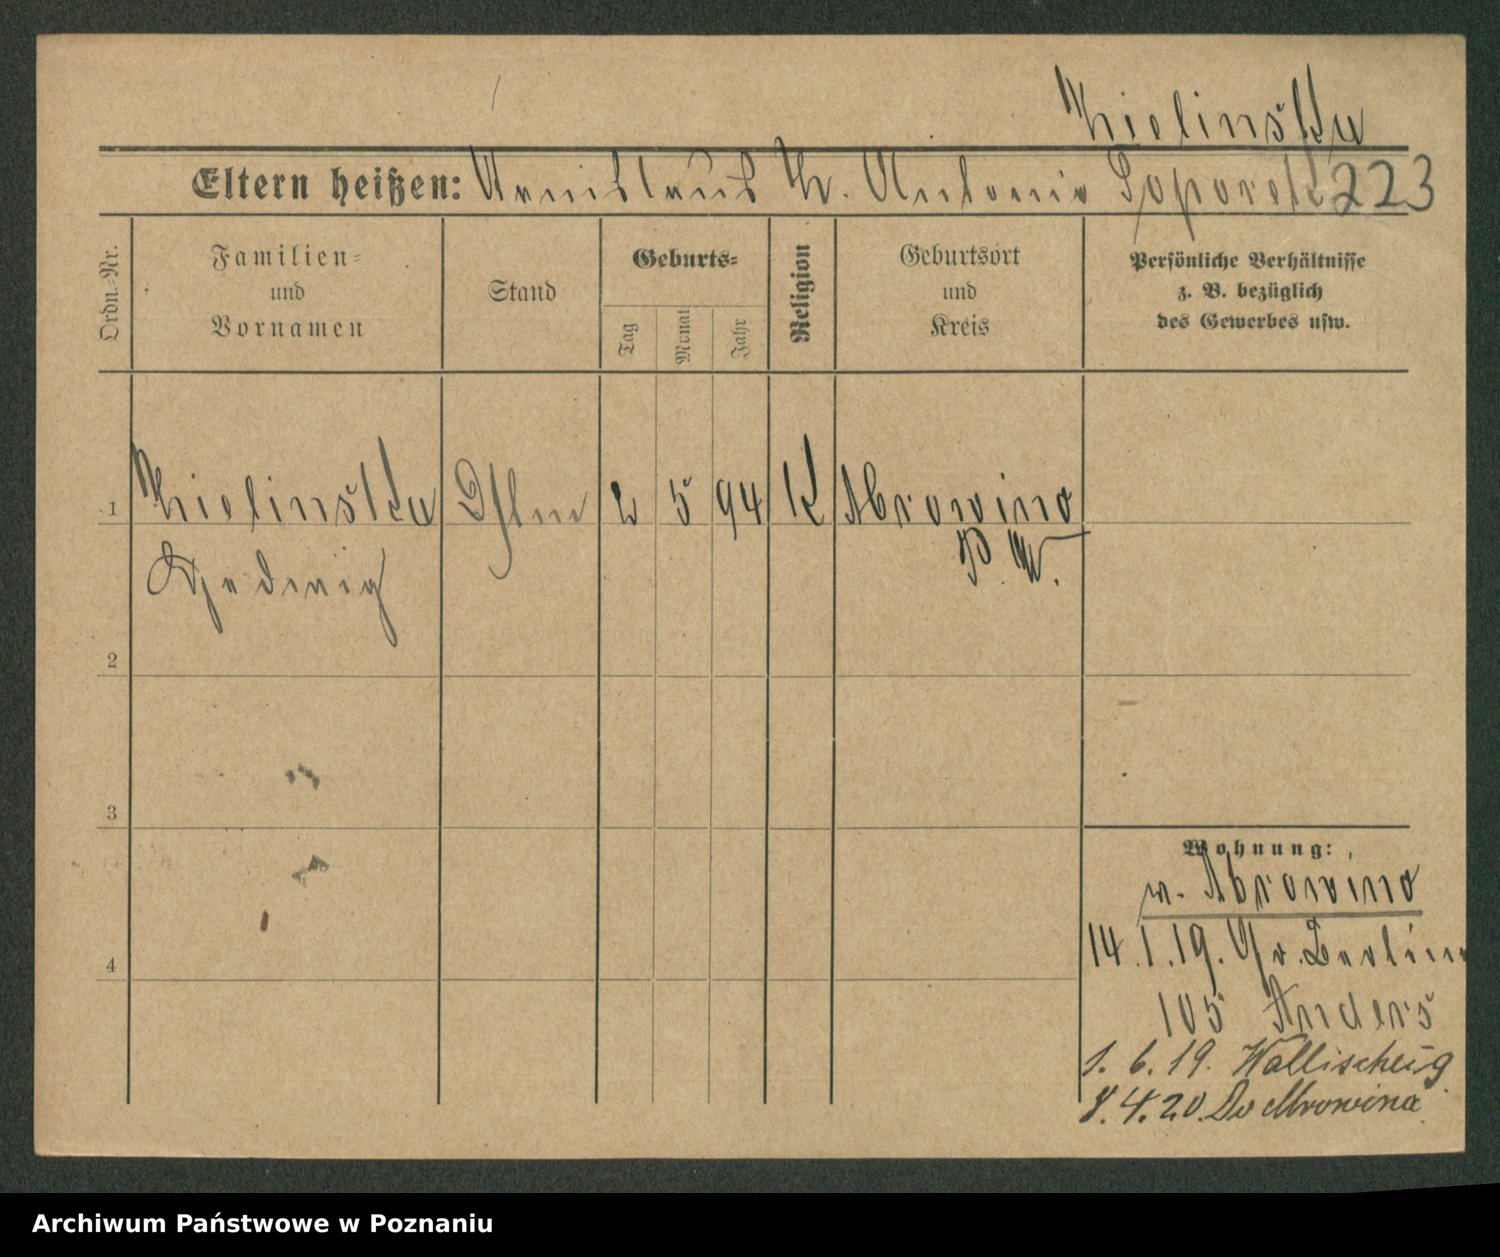 Zielinska
Eltern heißen: Stanislaus Z. Antonie 223
Ordn.-Nr.
Familien- und Vornamen
Stand
Geburts-
Tag
Monat
Jahr
Religion
Geburtsort und Kreis
Persönliche Verhältnisse
z. B. bezüglich
des Gewerbes usw.
1 Zielinska 2 5 94 K Mrowino
Hedwig P. W.
2
3
4
Wohnung:
v. Mrowino
14.1.19. Gr. Berliner
105 Anders
1.6.19. Wallischei 9
8.4.20. Mrowina
Archiwum Państwowe w Poznaniu